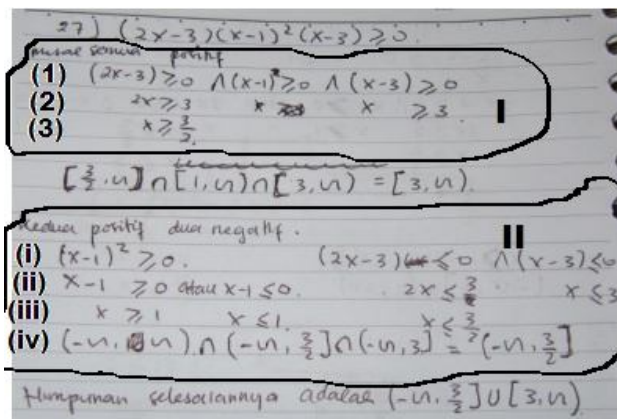 27) (2x-3)(x-1)²(x-3) ≥ 0
semua positif
(1) (2x-3) ≥ 0 ∧ (x-1)² ≥ 0 ∧ (x-3) ≥ 0
(2) 2x ≥ 3 x x ≥ 3. I
(3) x ≥ 3/2
[3/2, ∞] ∩ [1, ∞) ∩ [3, ∞) = [3, ∞).
kedua positif dua negatif. II
(i) (x-1)² ≥ 0. (2x-3) ≤ 0 ∧ (x-3) ≤ 0
(ii) x-1 ≥ 0 atau x-1 ≤ 0. 2x ≤ 3 x ≤ 3
(iii) x ≥ 1 x ≤ 1. x ≤ 3/2
(iv) (-∞, ∞) ∩ (-∞, 3/2] ∩ (-∞, 3] = (-∞, 3/2]
Himpunan selesaiannya adalah (-∞, 3/2] ∪ [3, ∞)